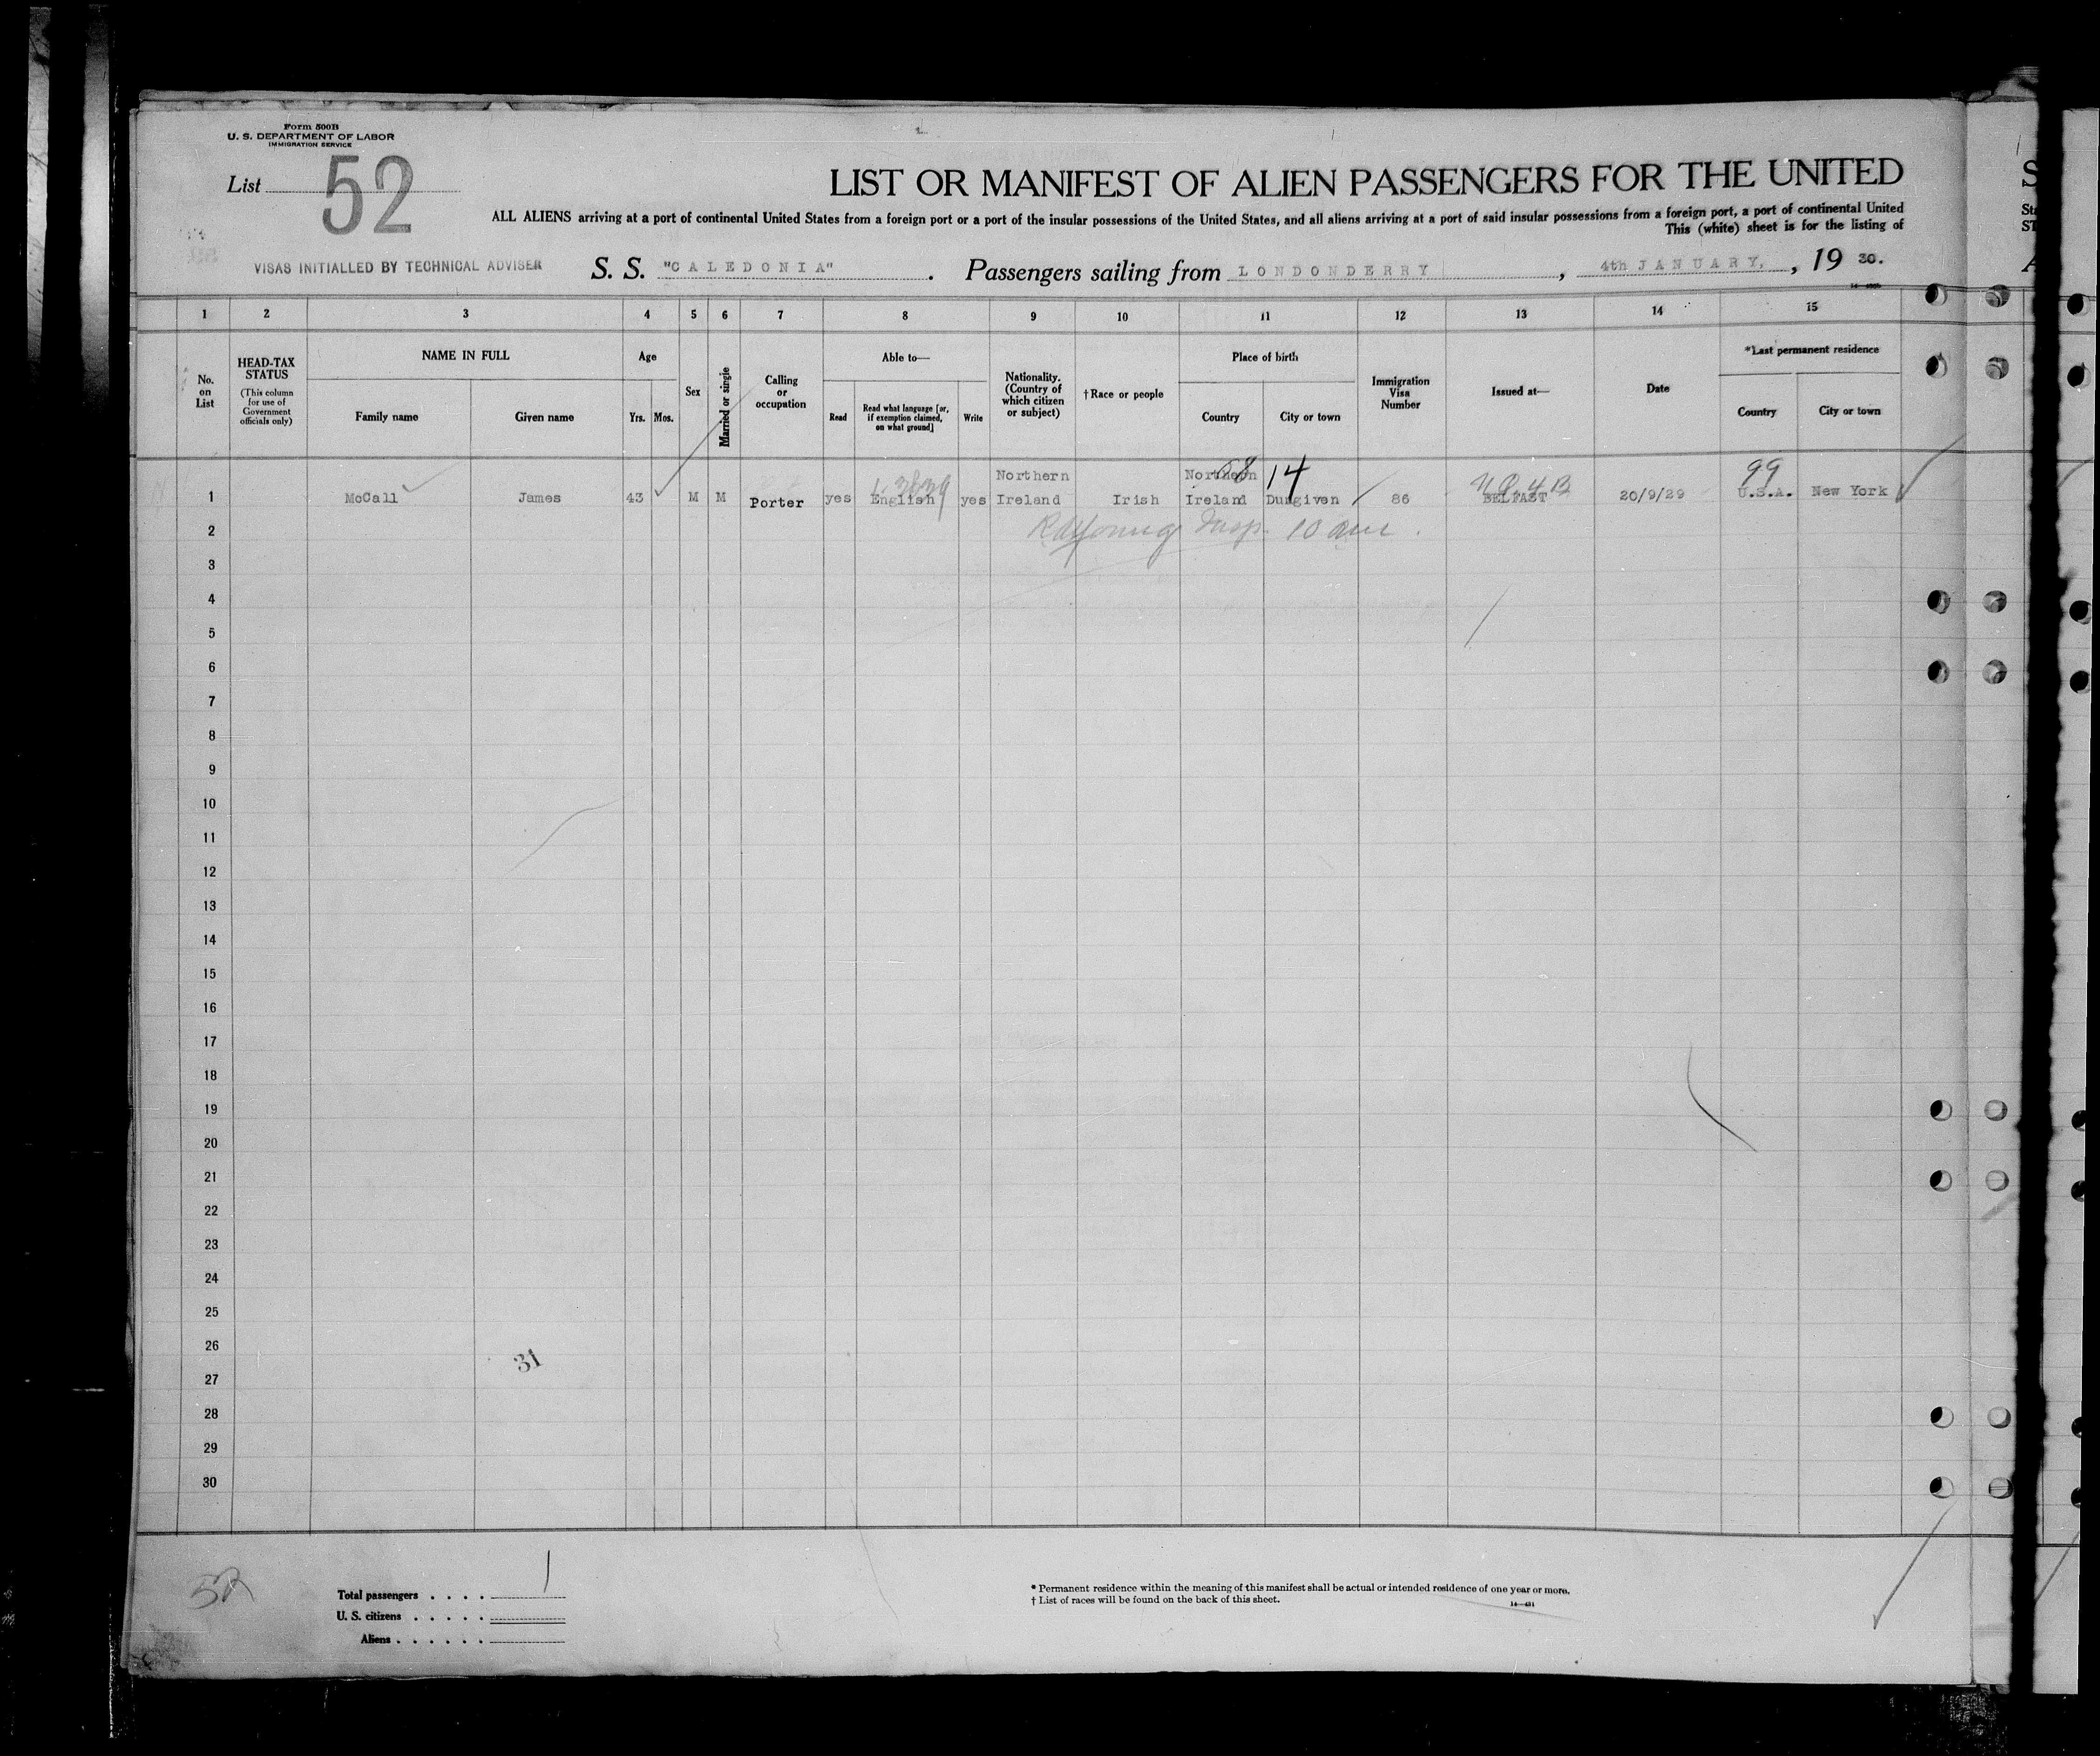 Form 500B
U. S. DEPARTMENT OF LABOR
IMMIGRATION SERVICE
List 52
LIST OR MANIFEST OF ALIEN PASSENGERS FOR THE UNITED
ALL ALIENS arriving at a port of continental United States from a foreign port or a port of the insular possessions of the United States, and all aliens arriving at a port of said insular possessions from a foreign port, a port of continental United
This (white) sheet is for the listing of
VISAS INITIALLED BY TECHNICAL ADVISER S. S. "CALEDONIA" . Passengers sailing from LONDONDERRY , 4th JANUARY, , 19 30.
1 2 3 4 5 6 7 8 9 10 11 12 13 14 15
No. on List
HEAD-TAX STATUS
(This column for use of Government officials only)
NAME IN FULL
Family name Given name
Age
Yrs. Mos.
Sex
Married or single
Calling or occupation
Able to—
Read Read what language [or, if exemption claimed, on what ground] Write
Nationality. (Country of which citizen or subject)
†Race or people
Place of birth
Country City or town
Immigration Visa Number
Issued at—
Date
*Last permanent residence
Country City or town
Northern Northern 58 14 99
1 McCall James 43 M M Porter yes English yes Ireland Irish Ireland Dungiven 86 BELFAST 20/9/29 U.S.A. New York
2 Young Insp. 10
3
4
5
6
7
8
9
10
11
12
13
14
15
16
17
18
19
20
21
22
23
24
25
26
31
27
28
29
30
52
Total passengers . . . . 1
U. S. citizens . . . . .
Aliens . . . . . .
* Permanent residence within the meaning of this manifest shall be actual or intended residence of one year or more.
† List of races will be found on the back of this sheet.